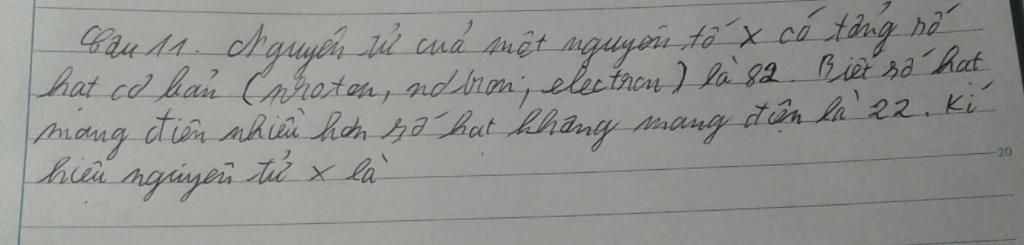 Câu 11. Nguyên tử của một nguyên tố X có tổng số
hạt cơ bản (proton, nơtron, electron) là 82. Biết số hạt
mang điện nhiều hơn số hạt không mang điện là 22. Kí
hiệu nguyên tử X là
20